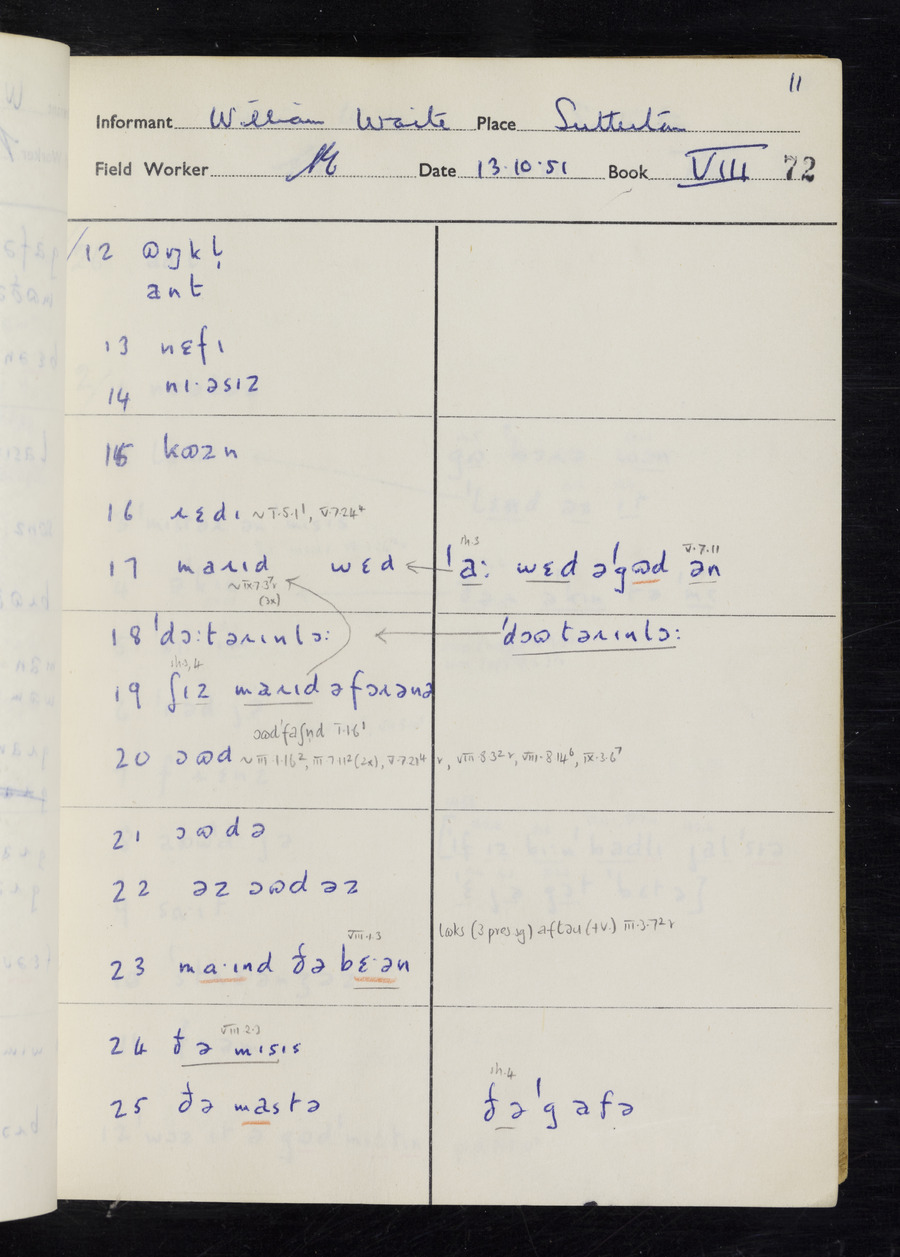 11
Informant William Waite Place Sutterton
Field Worker Date 13·10·51 Book VIII 72
/12 ɷŋkl̩
ant
13 nɛfɪ
14 nɪ·əsɪz
15 kɷzn
16 ɹɛdɪ ~ I.5.1¹, V.7.24⁴
17 maɹɪd wɛd ← ˈaː wɛd əˈgɷd ən
ih.3
V.7.11
~ IX.7.3⁷r
(3x)
18 ˈdɔːtəɹɪnlɔː ← ˈdɔɷtəɹɪnlɔː
ih.3,4
19 ʃɪz maɹɪd əfɔɹənə
ɔɷdˈfaʃn̩d I.1.6¹
20 ɔɷd ~ III.1.16², III.7.11²(2x), V.7.21⁴r, VIII.8.3²r, VIII.8.14⁶, IX.3.6⁷
21 ɔɷdə
22 əz ɔɷd əz
looks (3 pres sg) aftəɹ (+V.) III.3.7²r
VIII.1.3
23 ma·ɪnd ðə bɛ·ən
VIII.2.3
24 ðə mɪsɪs
ih.4
25 ðə mastə ðəˈgafə